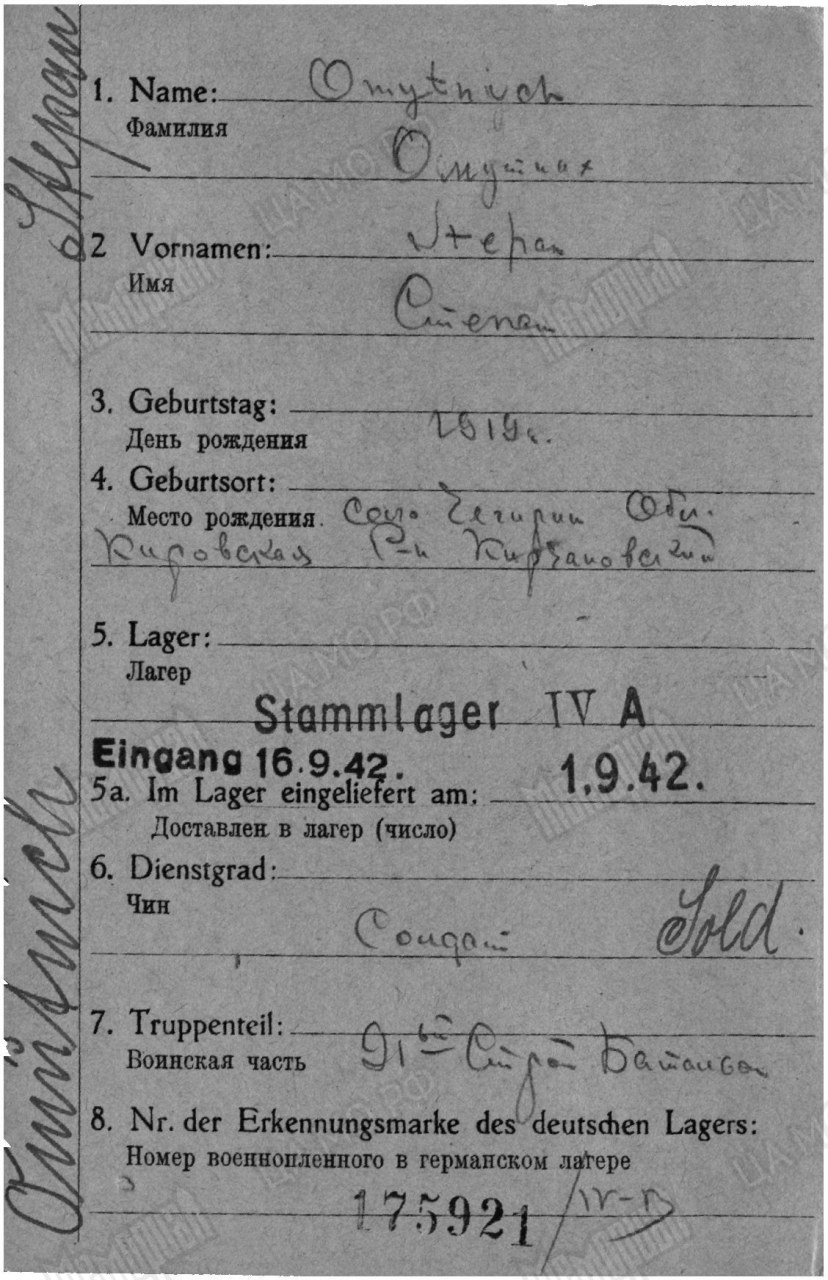 Stepan
1. Name: Omytnych
Фамилия
Омутных
2 Vornamen: Stepan
Имя
Степан
3. Geburtstag:
День рождения 1919г.
4. Geburtsort:
Место рождения. Село Чегирии Обл.
Кировская Р-н
5. Lager:
Лагер
Stammlager IV A
Eingang 16.9.42. 1.9.42.
5a. Im Lager eingeliefert am:
Доставлен в лагер (число)
6. Dienstgrad:
Чин
Солдат Sold.
7. Truppenteil:
Воинская часть 91ый Строй Батальон
8. Nr. der Erkennungsmarke des deutschen Lagers:
Номер военнопленного в германском лагере
175921/IV-B
Omütnich
ЦА МО РФ
Мемориал